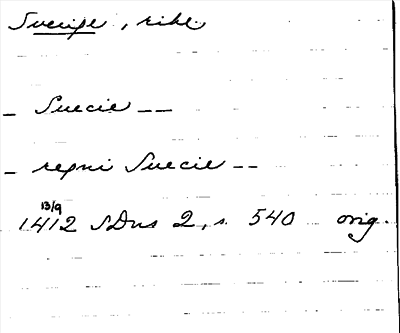 Sverige, rike.
– Suecie – –
– regni Suecie – –
13/9
1412 SDns 2, s. 540 orig.